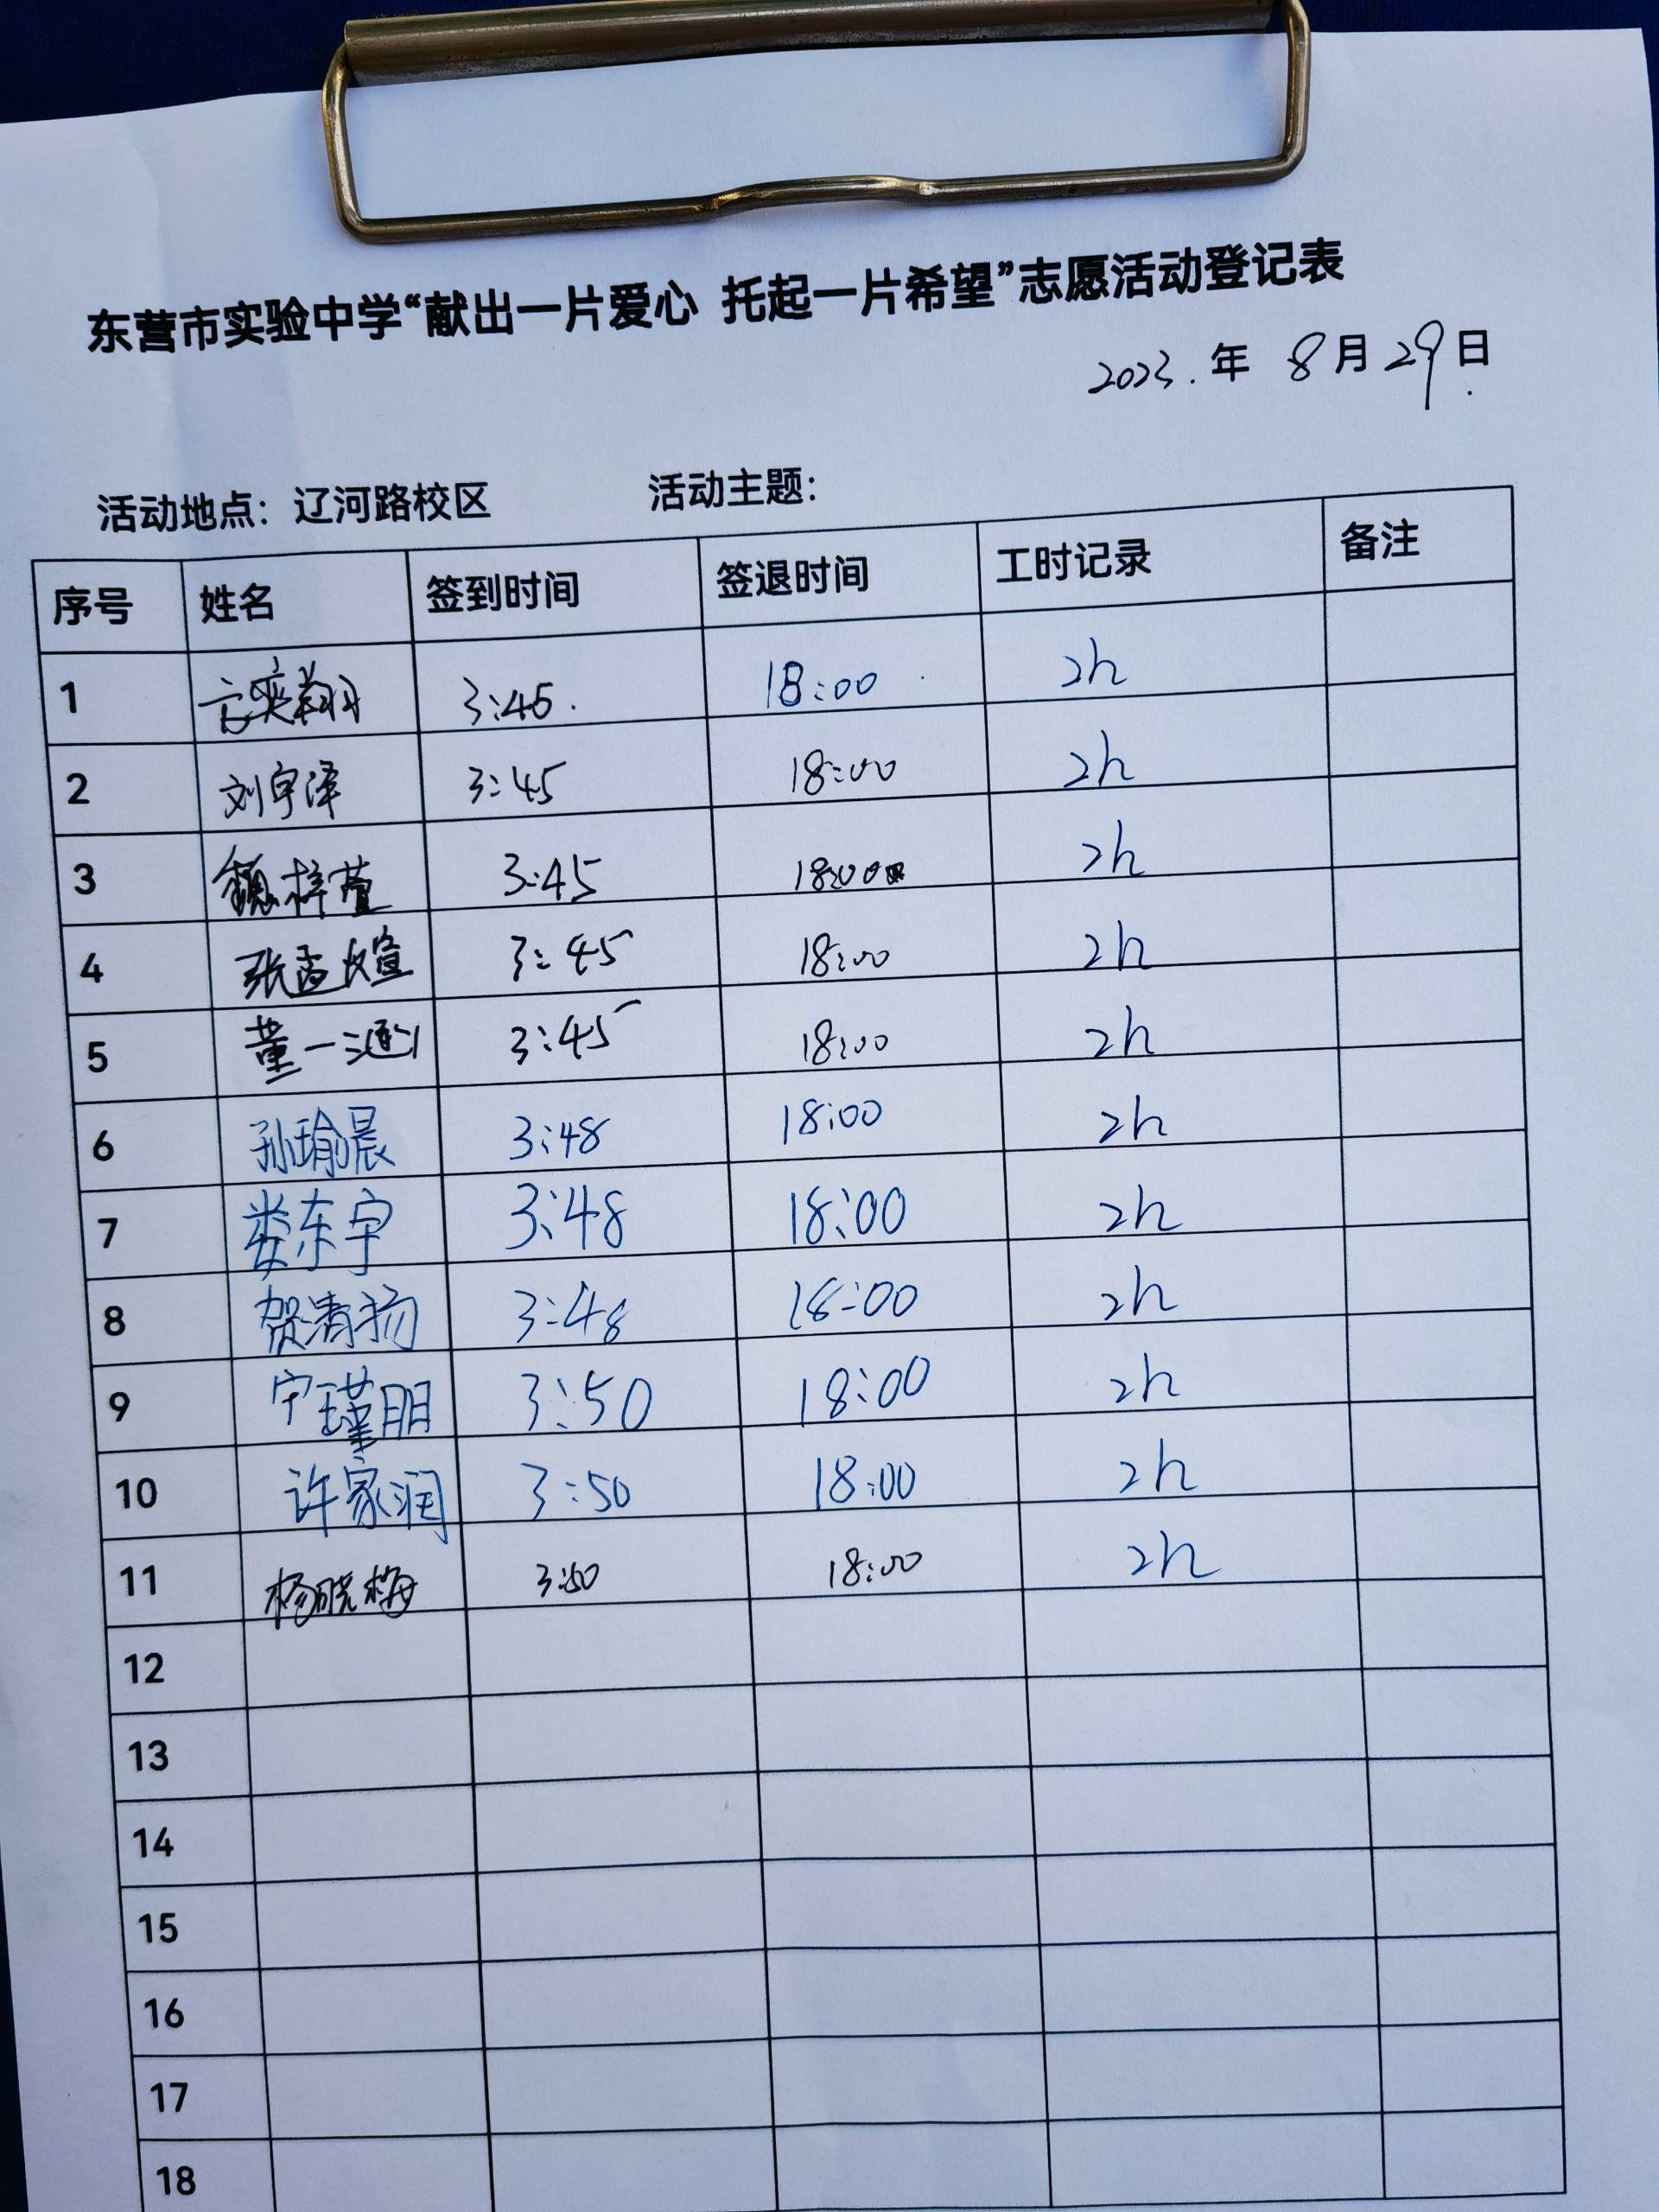 东营市实验中学“献出一片爱心 托起一片希望”志愿活动登记表
2023.年 8月29日
活动地点：辽河路校区 活动主题：
序号 姓名 签到时间 签退时间 工时记录 备注
1 奕翔 3:45. 18:00 2h
2 刘宇泽 3:45 18:00 2h
3 魏梓萱 3:45 18:00 2h
4 张孟煊 3:45 18:00 2h
5 董一 3:45 18:00 2h
6 孙瑜晨 3:48 18:00 2h
7 娄东宇 3:48 18:00 2h
8 贺清扬 3:48 18:00 2h
9 宁瑾明 3:50 18:00 2h
10 许家润 3:50 18:00 2h
11 杨晓梅 3:50 18:00 2h
12
13
14
15
16
17
18